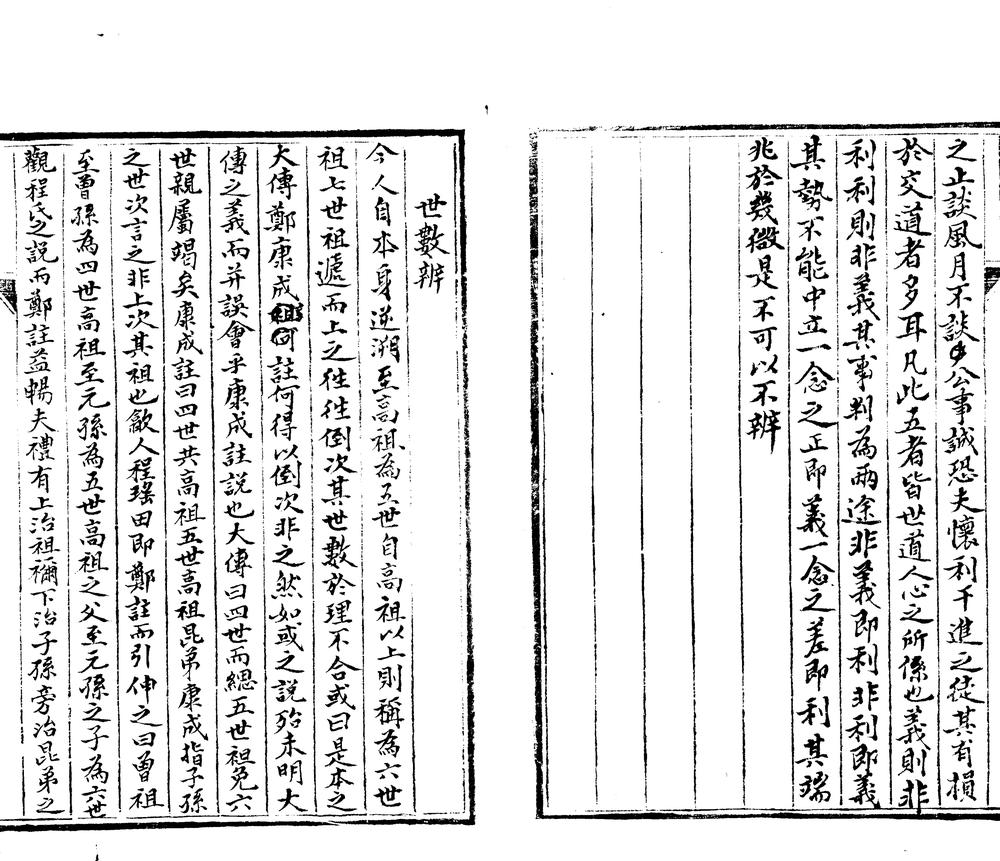 之止談風月不談公事誠恐夫懷利干進之徒其有損
於交道者多耳凡此五者皆世道人心之所係也義則非
利利則非義其事判為兩途非義即利非利即義
其勢不能中立一念之正即義一念之差即利其端
兆於幾微是不可以不辨
世數辨
今人自本身逆溯至高祖為五世自高祖以上則稱為六世
祖七世祖遞而上之往往倒次其世數於理不合或曰是本之
大傳鄭康成註何得以倒次非之然如或之說殆未明大
傳之義而并誤會乎康成註說也大傳曰四世而緦五世袒免六
世親屬竭矣康成註曰四世共高祖五世高祖昆弟康成指子孫
之世次言之非上次其祖也歙人程瑤田即鄭註而引伸之曰曾祖
至曾孫為四世高祖至元孫為五世高祖之父至元孫之子為六世
觀程氏之說而鄭註益暢夫禮有上治祖禰下治子孫旁治昆弟之